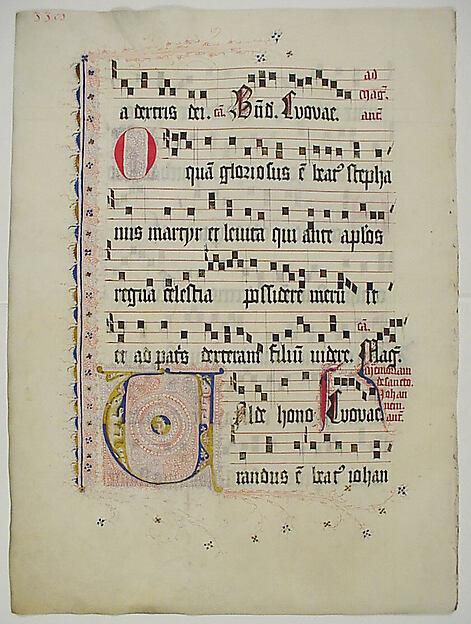 a dextris dei. Bnd. Evovae. ad mag. ant
O quā gloriosus ē beat' stepha
nus martyr et levita qui ante aplos
regna celestia possidere meru it
et ad patris dexteram filiū videre. Mag.
Valde hono Evovae
randus ē beat' iohan